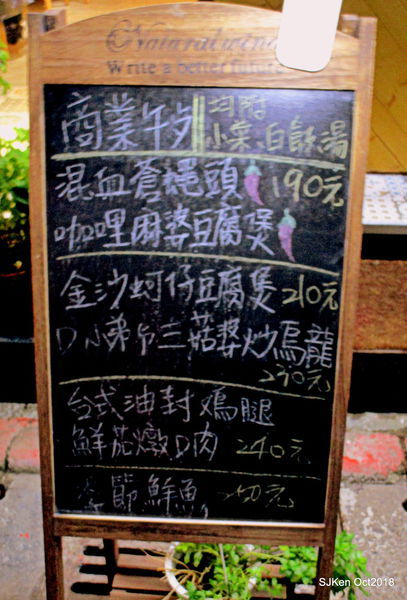 Natural wind
Write a better future
商業午夕
均附
小菜、白飯、湯
混血蒼蠅頭 190元
咖哩麻婆豆腐煲
金沙蚵仔豆腐煲 210元
三菇醬炒烏龍
230元
台式油封鴨腿
鮮茄燉D肉 240元
季節鮮魚 250元
SJKen Oct2018